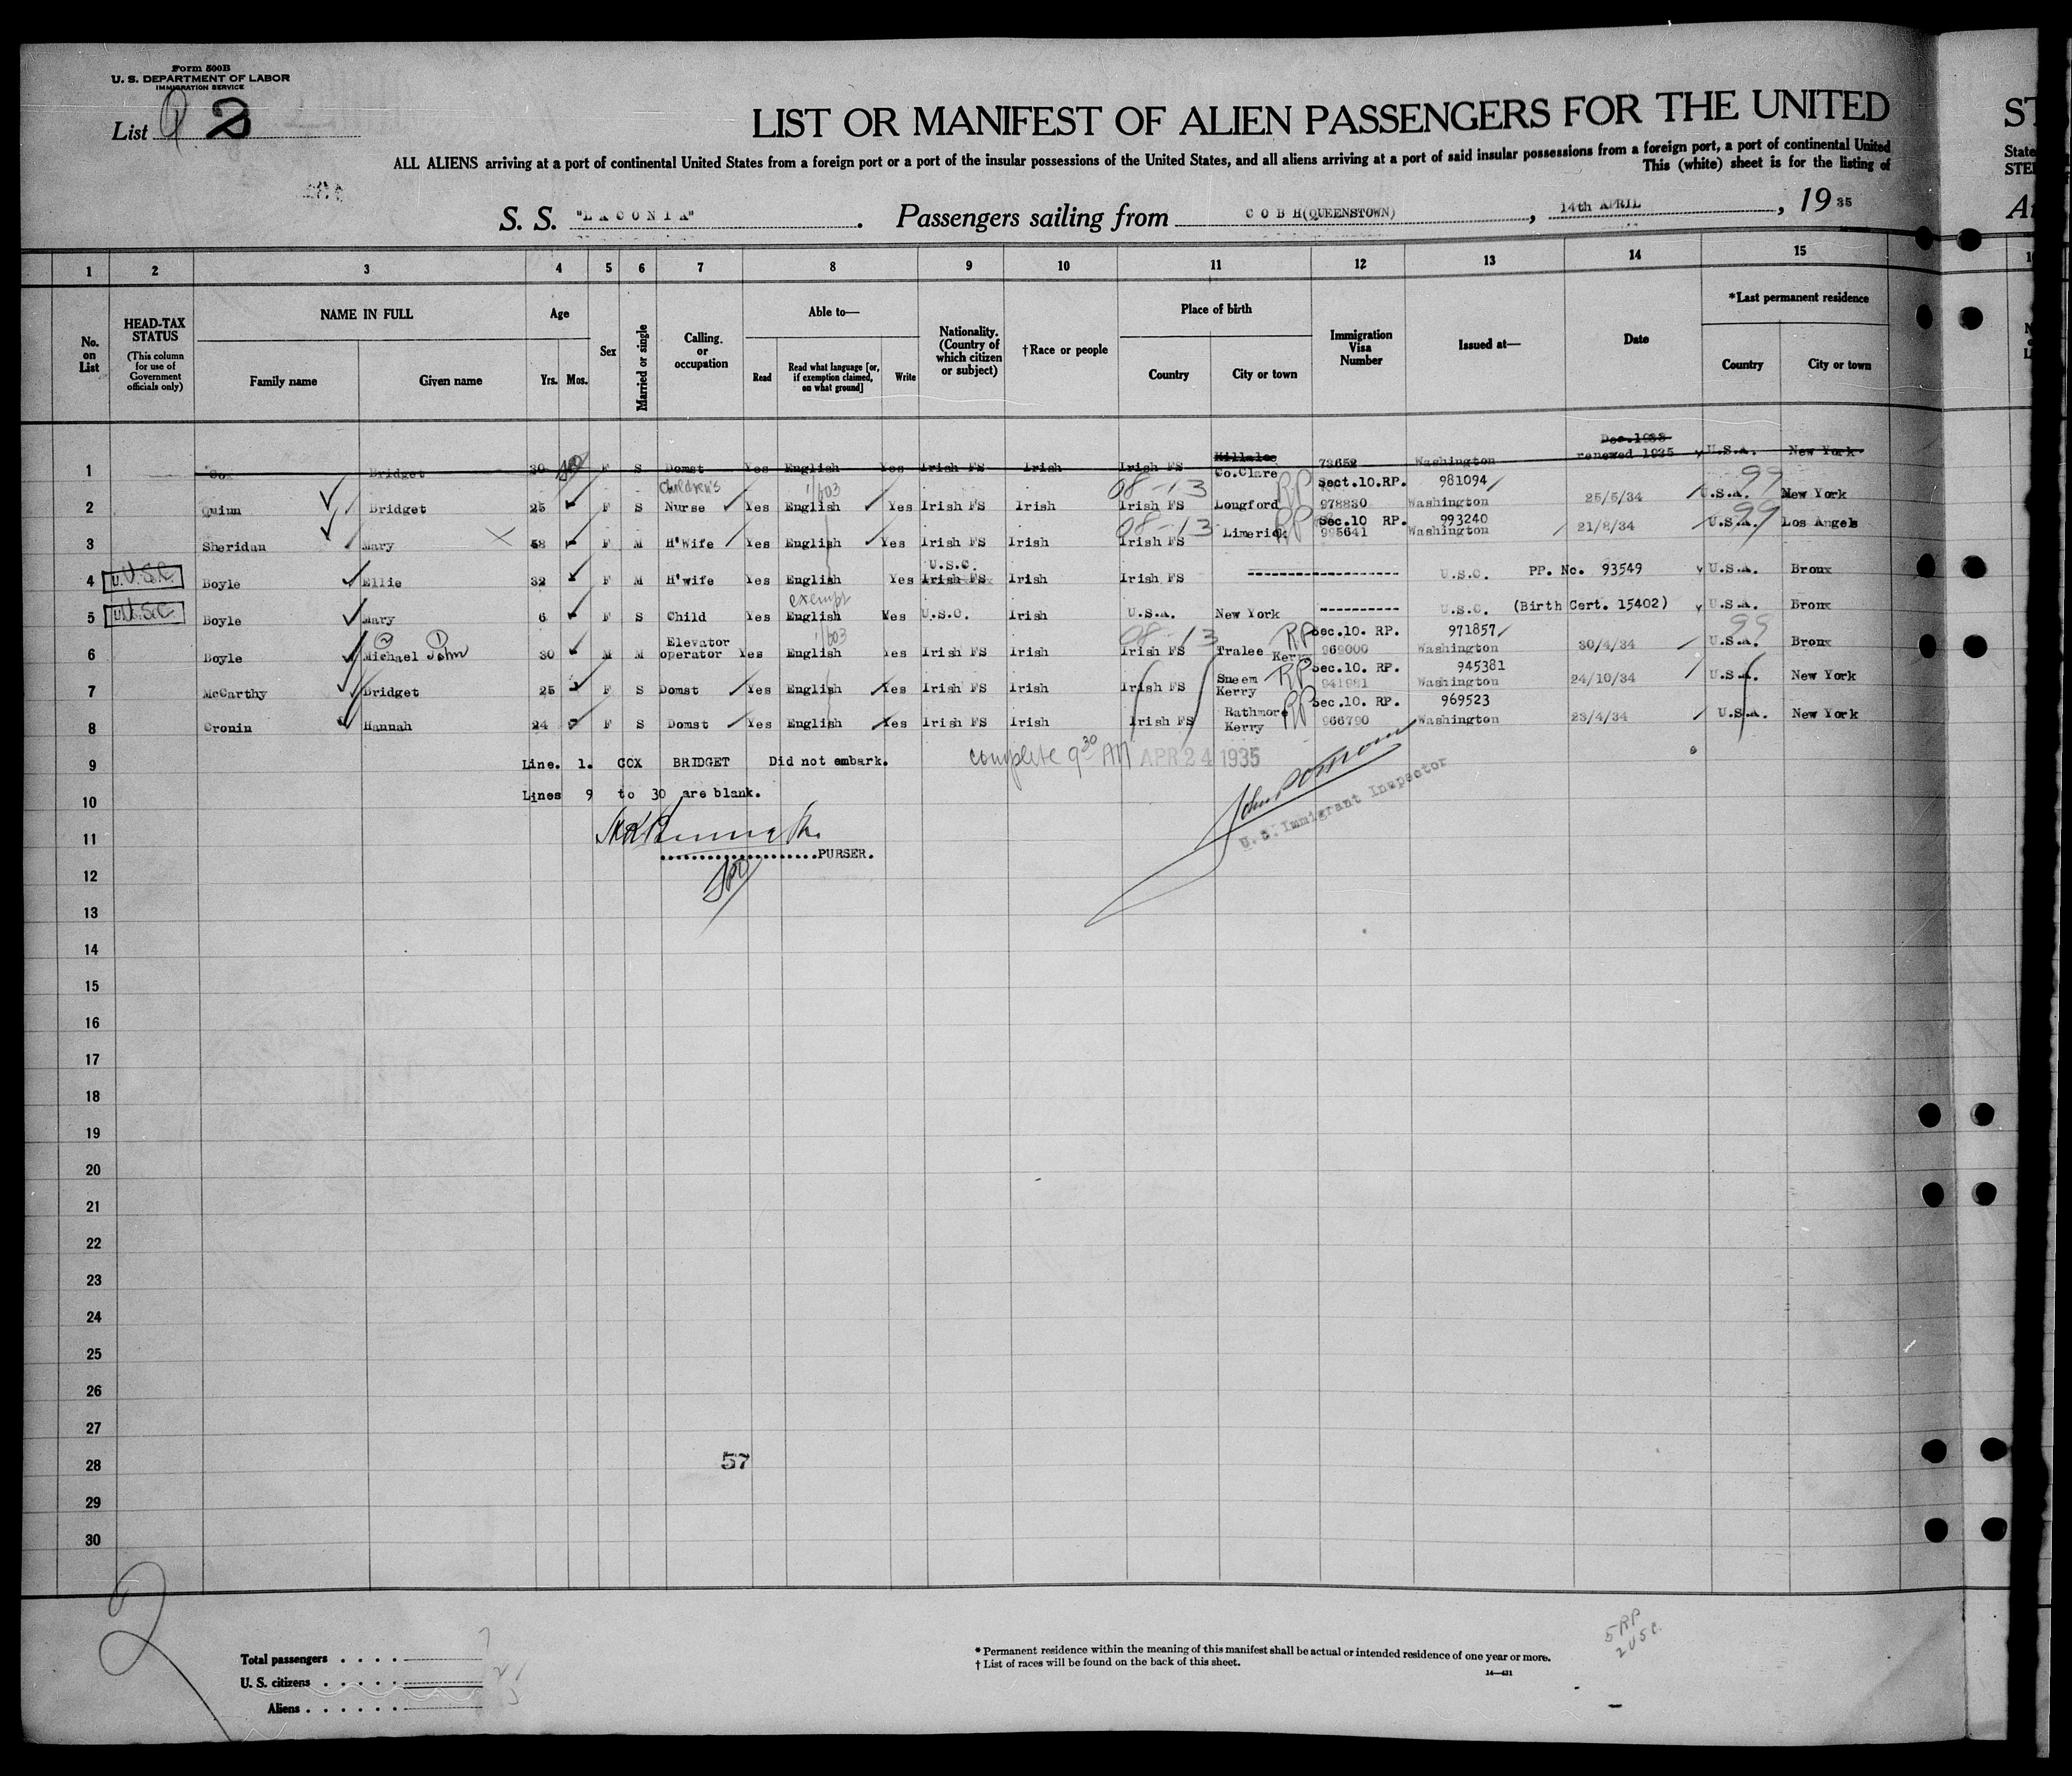 Form 500B
U. S. DEPARTMENT OF LABOR
IMMIGRATION SERVICE
List 2
LIST OR MANIFEST OF ALIEN PASSENGERS FOR THE UNITED
ST
ALL ALIENS arriving at a port of continental United States from a foreign port or a port of the insular possessions of the United States, and all aliens arriving at a port of said insular possessions from a foreign port, a port of continental United
State
This (white) sheet is for the listing of
STEE
S. S. "LACONIA". Passengers sailing from COBH(QUEENSTOWN), 14th APRIL, 1935
1 2 3 4 5 6 7 8 9 10 11 12 13 14 15
No. on List
HEAD-TAX STATUS
(This column for use of Government officials only)
NAME IN FULL
Family name Given name
Age
Yrs. Mos.
Sex
Married or single
Calling or occupation
Able to—
Read Read what language [or, if exemption claimed, on what ground] Write
Nationality. (Country of which citizen or subject)
†Race or people
Place of birth
Country City or town
Immigration Visa Number
Issued at—
Date
*Last permanent residence
Country City or town
Dec.1933
1 Cox Bridget 30 F S Domst Yes English Yes Irish FS Irish Irish FS Killaloe Co.Clare 73652 Washington renewed 1935 U.S.A. New York
Children's 1/603 08-13 RP Sect.10.RP. 981094 99
2 Quinn Bridget 25 F S Nurse Yes English Yes Irish FS Irish Irish FS Longford 978830 Washington 25/5/34 U.S.A. New York
08-13 RP Sec.10 RP. 993240 99
3 Sheridan Mary 58 F M H'Wife Yes English Yes Irish FS Irish Irish FS Limerick 995641 Washington 21/8/34 U.S.A. Los Angels
U.S.C.
4 U.S.C. Boyle Ellie 32 F M H'wife Yes English Yes Irish FS Irish Irish FS ---------------- U.S.C. PP. No. 93549 U.S.A. Bronx
exempt
5 U.S.C. Boyle Mary 6 F S Child Yes English Yes U.S.C. Irish U.S.A. New York ---------- U.S.C. (Birth Cert. 15402) U.S.A. Bronx
2 1 Elevator 1/603 08-13 RP Sec.10. RP. 971857 99
6 Boyle Michael John 30 M M operator Yes English Yes Irish FS Irish Irish FS Tralee Kerry 969000 Washington 30/4/34 U.S.A. Bronx
Sneem RP Sec.10. RP. 945381
7 McCarthy Bridget 25 F S Domst Yes English Yes Irish FS Irish Irish FS Kerry 941981 Washington 24/10/34 U.S.A. New York
Rathmore RP Sec.10. RP. 969523
8 Cronin Hannah 24 F S Domst Yes English Yes Irish FS Irish Irish FS Kerry 966790 Washington 23/4/34 U.S.A. New York
9 Line. 1. COX BRIDGET Did not embark. complete 9 30 AM APR 24 1935
10 Lines 9 to 30 are blank.
U. S. Immigrant Inspector
11
PURSER.
12
13
14
15
16
17
18
19
20
21
22
23
24
25
26
27
28 57
29
30
2
5 RP
2 USC.
Total passengers . . . . 7
U. S. citizens . . . . . 2
Aliens . . . . . . 5
* Permanent residence within the meaning of this manifest shall be actual or intended residence of one year or more.
† List of races will be found on the back of this sheet.
14—431